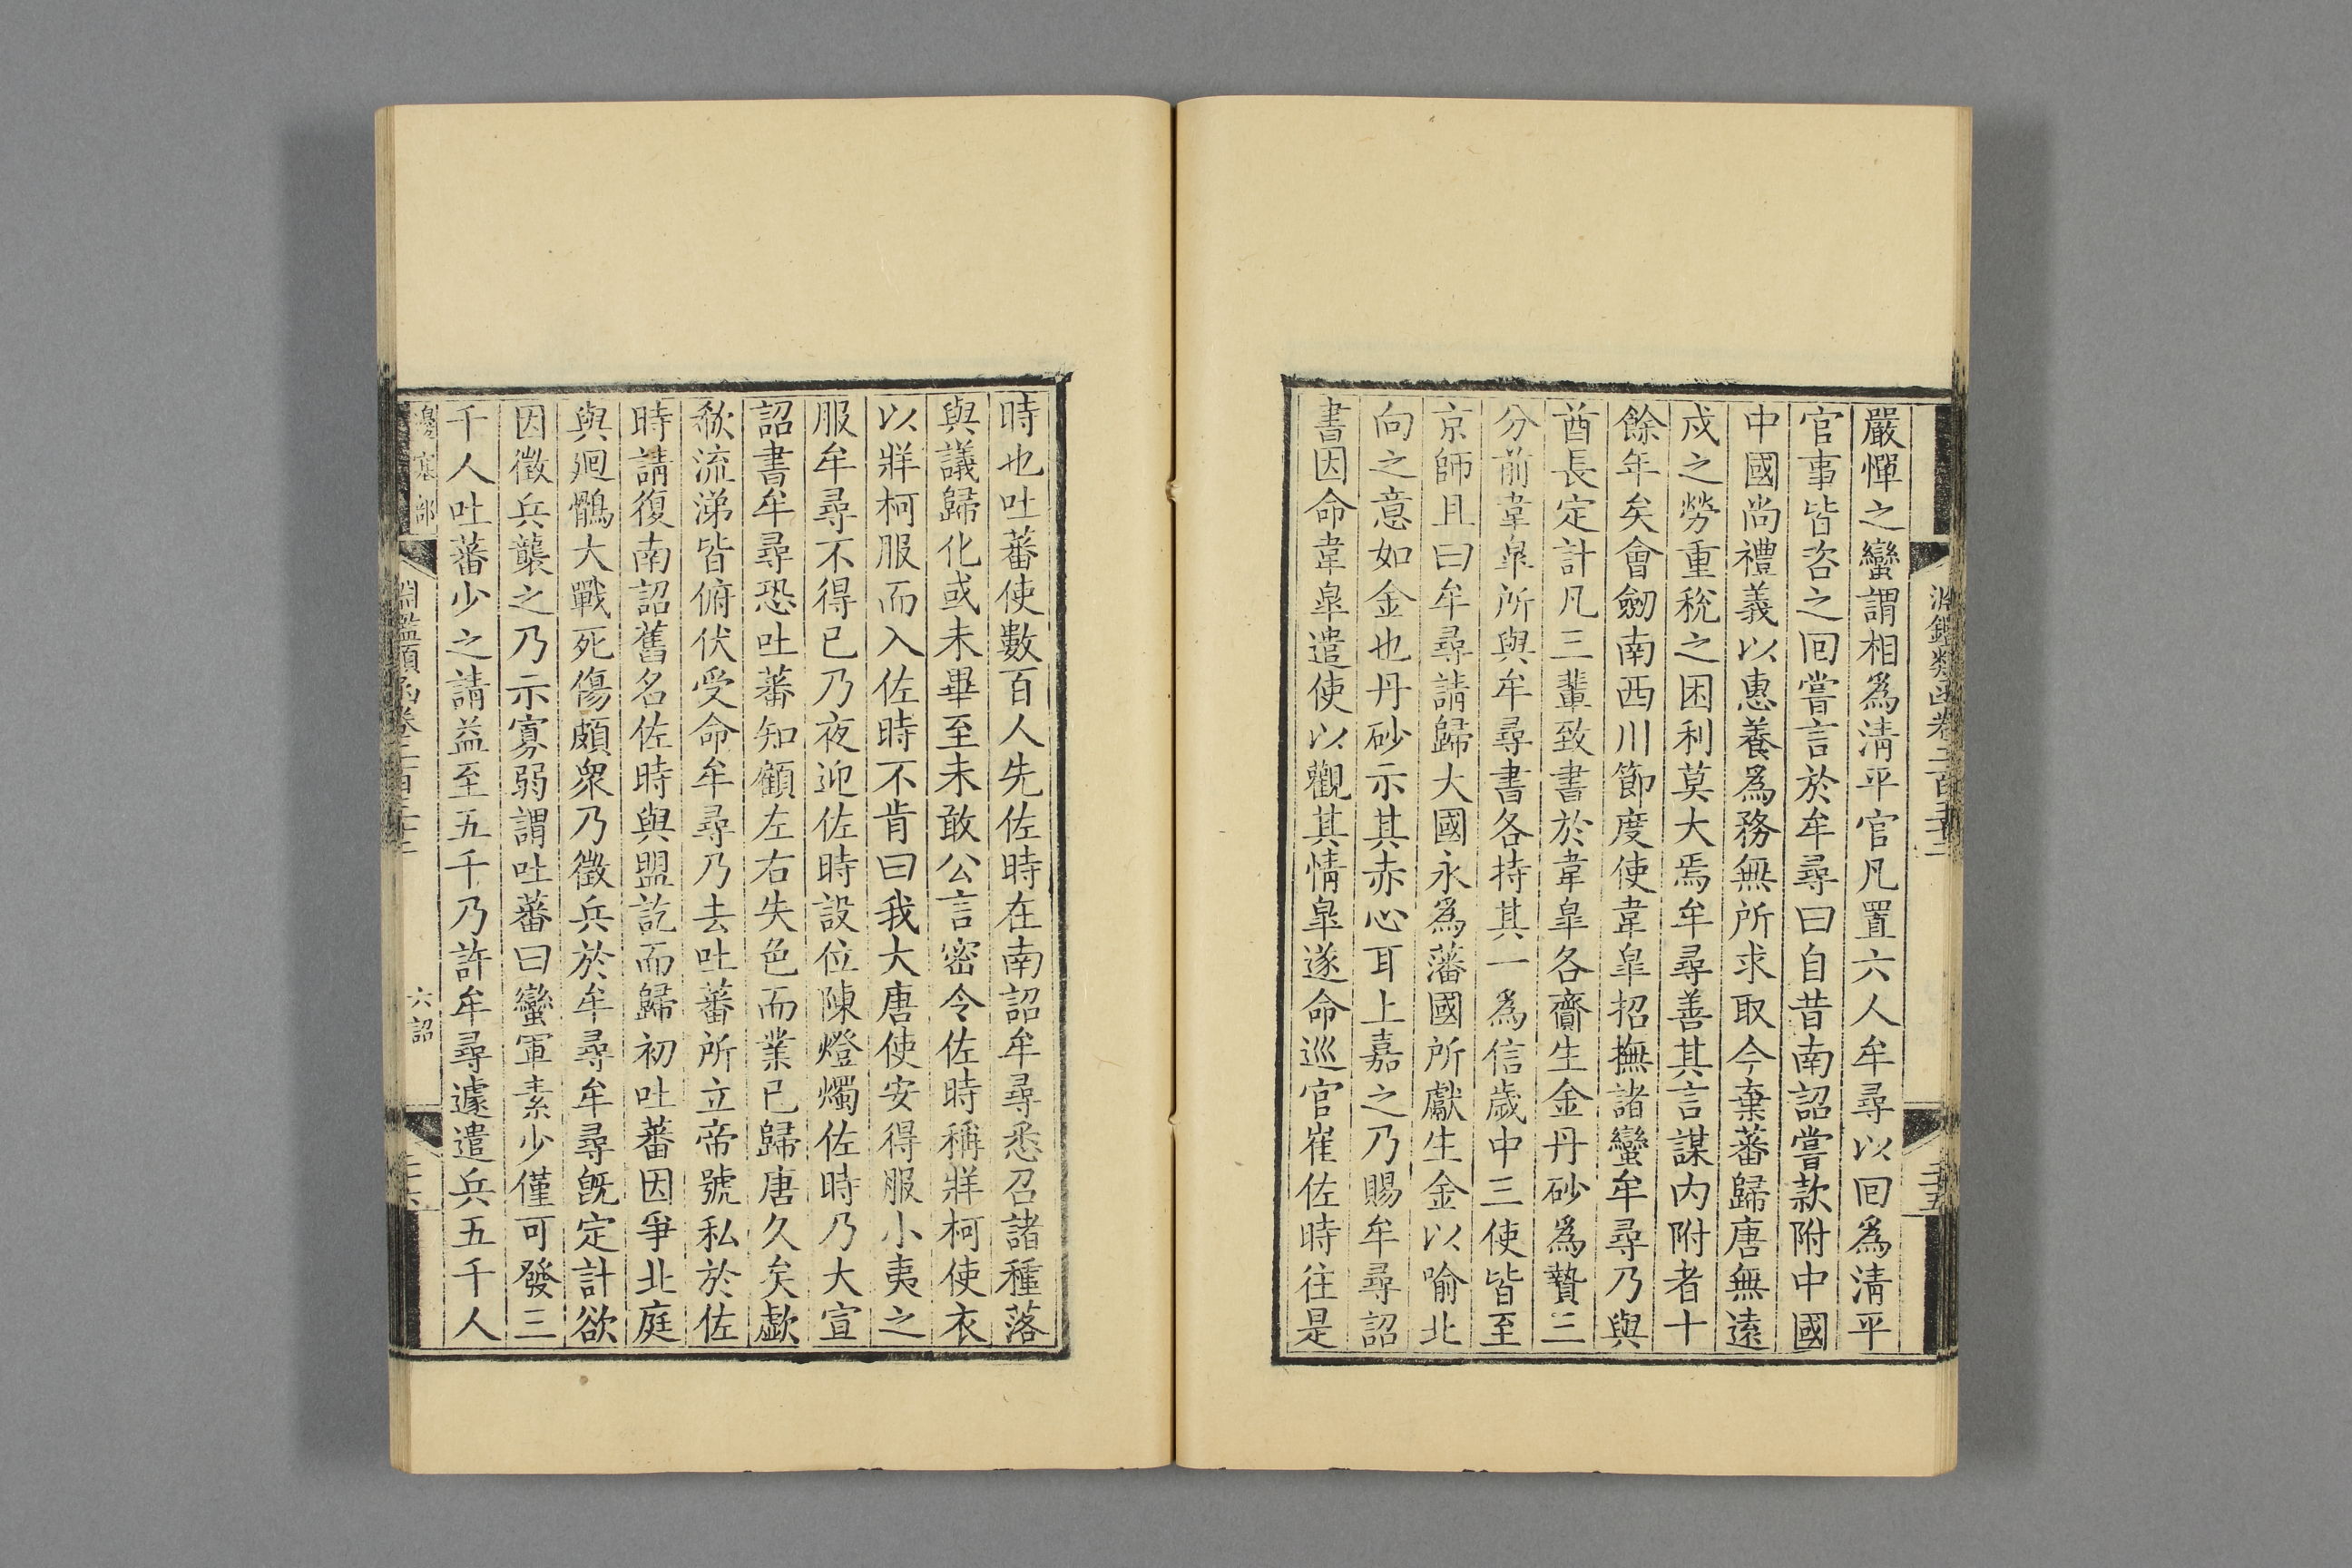 嚴憚之蠻謂相爲淸平官凡置六人牟尋以回爲淸平
官事皆咨之回嘗言於牟尋曰自昔南詔嘗款附中國
中國尚禮義以惠養爲務無所求取今棄蕃歸唐無遠
戍之勞重稅之困利莫大焉牟尋善其言謀内附者十
餘年矣會劒南西川節度使韋皐招撫諸蠻牟尋乃與
酋長定計凡三輩致書於韋皐各齎生金丹砂爲贄三
分前韋皐所與牟尋書各持其一爲信歲中三使皆至
京師且曰牟尋請歸大國永爲藩國所獻生金以喻北
向之意如金也丹砂示其赤心耳上嘉之乃賜牟尋詔
書因命韋皐遣使以觀其情皐遂命巡官崔佐時往是
時也吐蕃使數百人先佐時在南詔牟尋悉召諸種落
與議歸化或未畢至未敢公言密令佐時稱牂柯使衣
以牂柯服而入佐時不肯曰我大唐使安得服小夷之
服牟尋不得已乃夜迎佐時設位陳燈燭佐時乃大宣
詔書牟尋恐吐蕃知顧左右失色而業已歸唐久矣歔
欷流涕皆俯伏受命牟尋乃去吐蕃所立帝號私於佐
時請復南詔舊名佐時與盟訖而歸初吐蕃因爭北庭
與廻鶻大戰死傷頗衆乃徵兵於牟尋牟尋旣定計欲
因徵兵襲之乃示寡弱謂吐蕃曰蠻軍素少僅可發三
千人吐蕃少之請益至五千乃許牟尋遽遣兵五千人
邊塞部
六詔